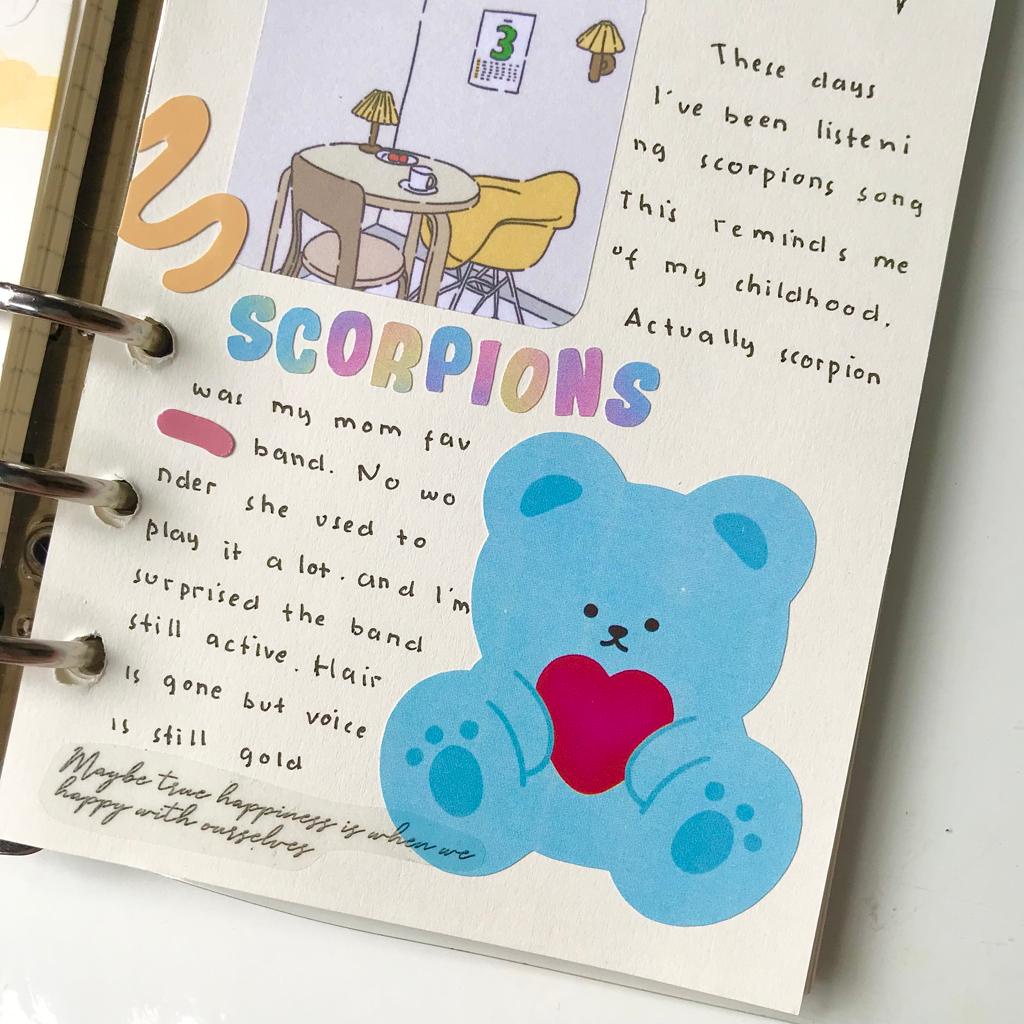 3
These days
I've been listeni
ng scorpions song
This reminds me
of my childhood.
Actually scorpion
SCORPIONS
was my mom fav
band. No wo
nder she used to
play it a lot. and I'm
surprised the band
still active. Hair
is gone but voice
is still gold
Maybe true happiness is when we
happy with ourselves